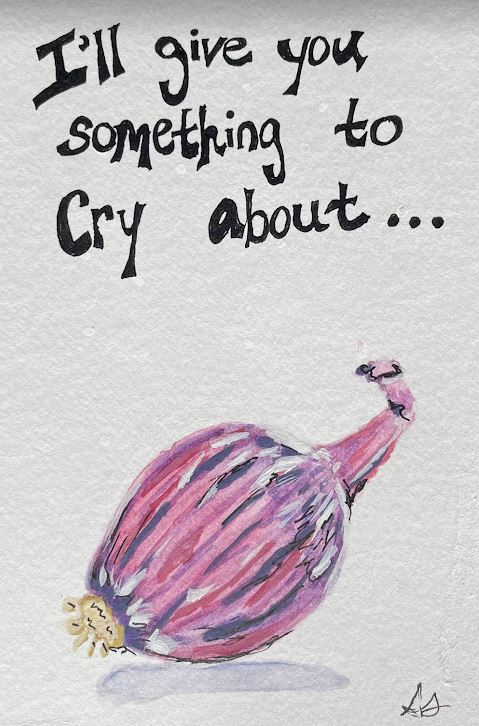 I'll give you
something to
Cry about...